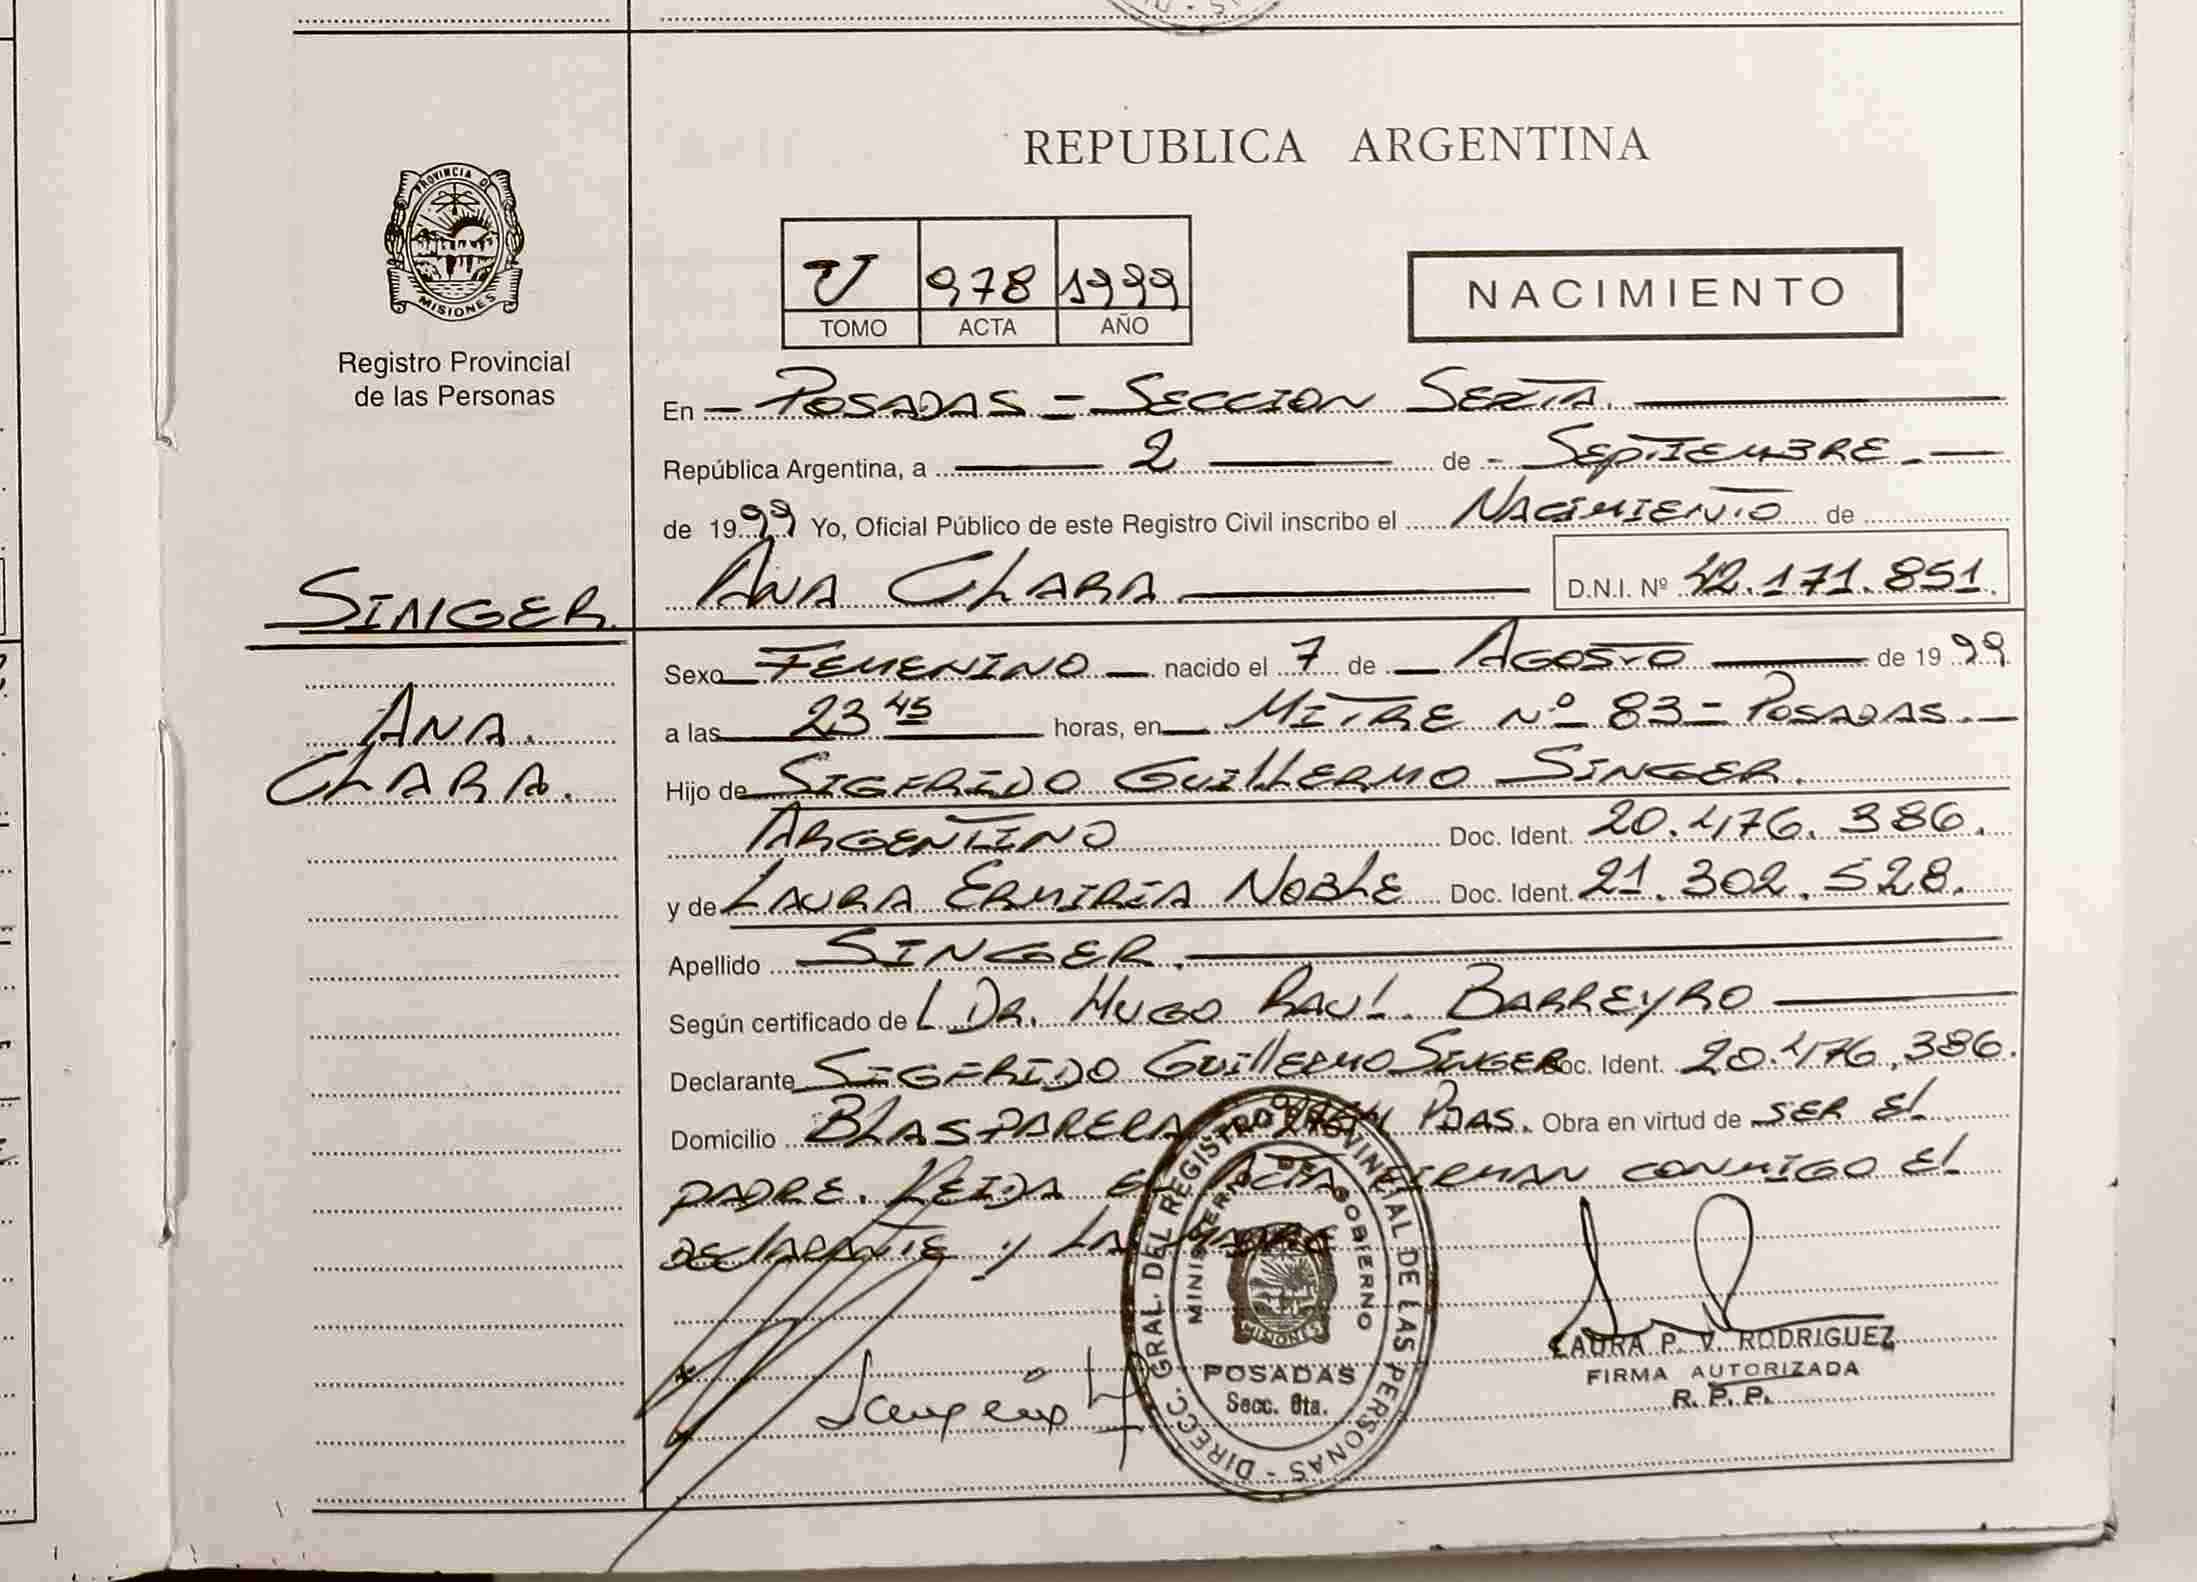 PROVINCIA DE
MISIONES
Registro Provincial
de las Personas
SINGER.
ANA.
CLARA.
REPUBLICA ARGENTINA
V 978 1999
TOMO ACTA AÑO
NACIMIENTO
En - POSADAS - SECCION SEXTA.
República Argentina, a 2 de - SEPTIEMBRE.-
de 1999 Yo, Oficial Público de este Registro Civil inscribo el NACIMIENTO de
ANA CLARA D.N.I. Nº 42.171.851.
Sexo FEMENINO nacido el 7 de AGOSTO de 1999
a las 23 45 horas, en MITRE Nº 83 - POSADAS.-
Hijo de SIGFRIDO GUILLERMO SINGER.
ARGENTINO Doc. Ident. 20.476.386.
y de LAURA ERMIRIA NOBLE Doc. Ident. 21.302.528.
Apellido SINGER.
Según certificado de L DR. HUGO RAUL BARREYRO
Declarante SIGFRIDO GUILLERMO SINGER Doc. Ident. 20.476.386.
Domicilio BLAS PARERA PDAS. Obra en virtud de SER EL
PADRE. LEIDA EL ACTA FIRMAN CONMIGO EL
DECLARANTE Y LA MADRE
DIREC. GRAL. DEL REGISTRO PROVINCIAL DE LAS PERSONAS -
MINISTERIO DE GOBIERNO
MISIONES
POSADAS
Secc. 6ta.
LAURA P. V. RODRIGUEZ
FIRMA AUTORIZADA
R. P. P.